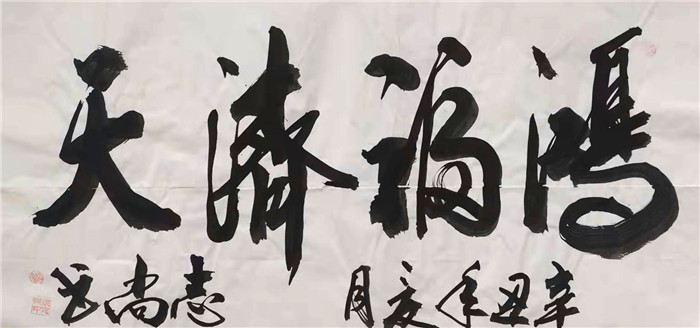 鴻福濟天
辛丑年夏月 志尚书